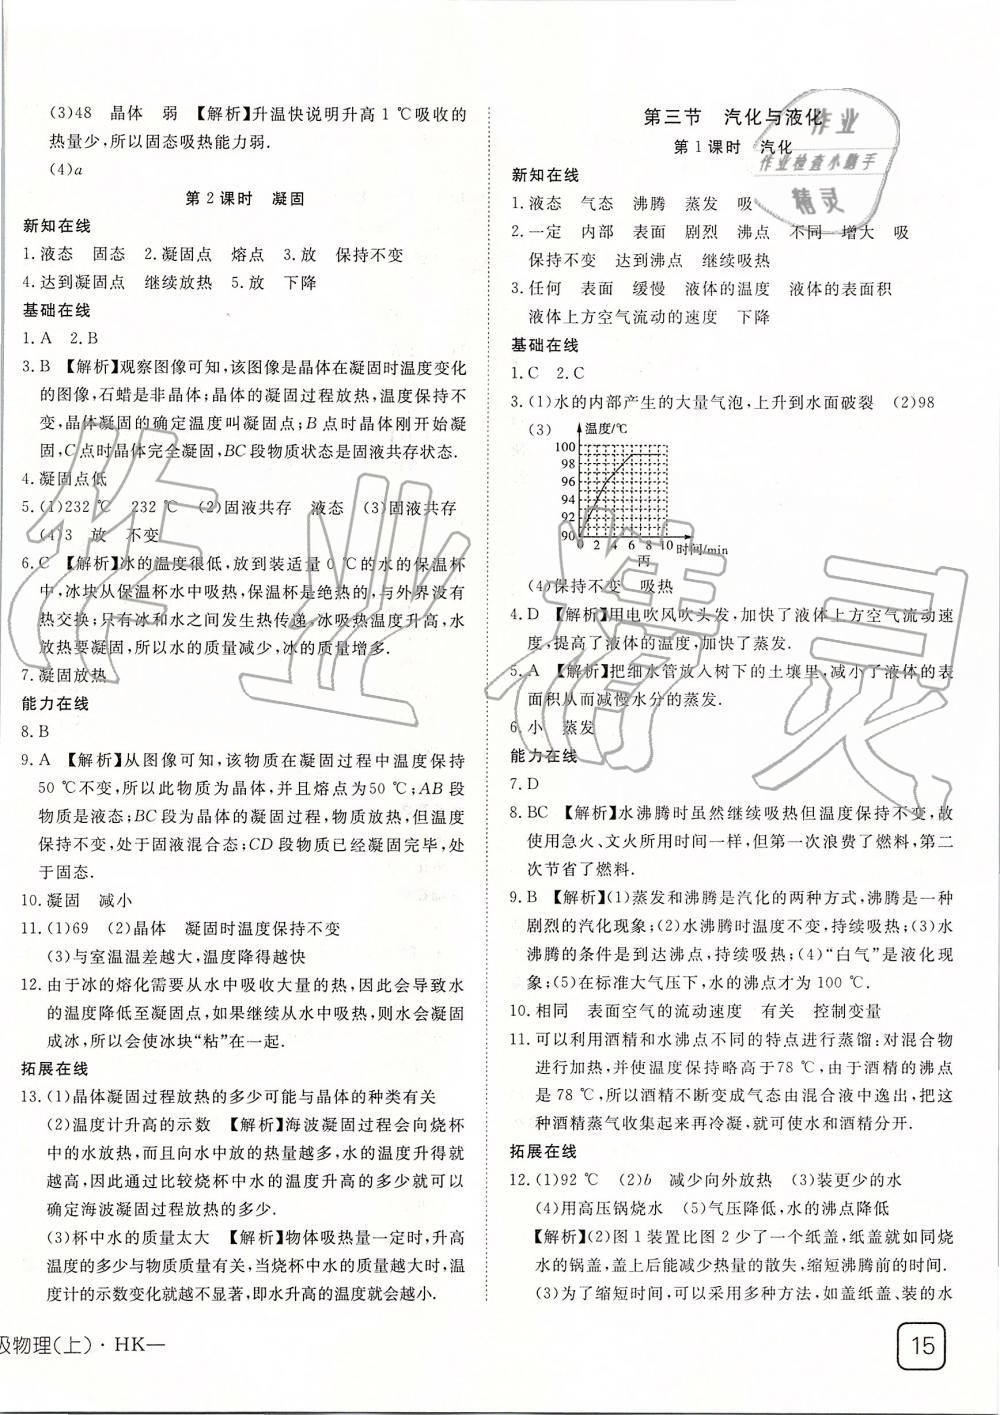 (3)48　晶体　弱　【解析】升温快说明升高 1 ℃吸收的
热量少,所以固态吸热能力弱.
(4)a
第 2 课时　凝固
新知在线
1. 液态　固态　2. 凝固点　熔点　3. 放　保持不变
4. 达到凝固点　继续放热　5. 放　下降
基础在线
1. A　2. B
3. B　【解析】观察图像可知,该图像是晶体在凝固时温度变化
的图像,石蜡是非晶体;晶体的凝固过程放热,温度保持不
变,晶体凝固的确定温度叫凝固点;B 点时晶体刚开始凝
固,C 点时晶体完全凝固,BC 段物质状态是固液共存状态.
4. 凝固点低
5. (1)232 ℃　232 ℃　(2)固液共存　液态　(3)固液共存
(4)3　放　不变
6. C　【解析】冰的温度很低,放到装适量 0 ℃的水的保温杯
中,冰块从保温杯水中吸热,保温杯是绝热的,与外界没有
热交换;只有冰和水之间发生热传递,冰吸热温度升高,水
放热要凝固,所以水的质量减少,冰的质量增多.
7. 凝固放热
能力在线
8. B
9. A　【解析】从图像可知,该物质在凝固过程中温度保持
50 ℃不变,所以此物质为晶体,并且熔点为50 ℃;AB 段
物质是液态;BC 段为晶体的凝固过程,物质放热,但温度
保持不变,处于固液混合态;CD 段物质已经凝固完毕,处
于固态.
10. 凝固　减小
11. (1)69　(2)晶体　凝固时温度保持不变
(3)与室温温差越大,温度降得越快
12. 由于冰的熔化需要从水中吸收大量的热,因此会导致水
的温度降低至凝固点,如果继续从水中吸热,则水会凝固
成冰,所以会使冰块“粘”在一起.
拓展在线
13. (1)晶体凝固过程放热的多少可能与晶体的种类有关
(2)温度计升高的示数　【解析】海波凝固过程会向烧杯
中的水放热,而且放出的热量越多,水温度升高的越多,
因此通过比较烧杯中水的温度升高的多少就可以
确定海波凝固过程放热的多少.
(3)杯中水的质量太大　【解析】物体吸热量一定时,升高
温度的多少与物质质量有关,当烧杯中水的质量越大时,温
度计的示数变化就越不显著,即水升高的温度就会越小.
级物理(上)·HK—
第三节　汽化与液化
第 1 课时　汽化
作业
作业检查小助手
精灵
新知在线
1. 液态　气态　沸腾　蒸发　吸
2. 一定　内部　表面　剧烈　沸点　不同　增大　吸
保持不变　达到沸点　继续吸热
3. 任何　表面　缓慢　液体的温度　液体的表面积
液体上方空气流动的速度　下降
基础在线
1. C　2. C
3. (1)水的内部产生的大量气泡,上升到水面破裂　(2)98
(3)
温度/℃
100
98
96
94
92
90
0 2 4 6 8 10 时间/min
丙
(4)保持不变　吸热
4. D　【解析】用电吹风吹头发,加快了液体上方空气流动速
度,提高了液体的温度,加快了蒸发.
5. A　【解析】把细水管放入树下的土壤里,减小了液体的表
面积从而减慢水分的蒸发.
6. 小　蒸发
能力在线
7. D
8. BC　【解析】水沸腾时虽然继续吸热但温度保持不变,故
使用急火、文火所用时间一样,但第一次浪费了燃料,第二
次节省了燃料.
9. B　【解析】(1)蒸发和沸腾是汽化的两种方式,沸腾是一种
剧烈的汽化现象;(2)水沸腾时温度不变,持续吸热;(3)水
沸腾的条件是到达沸点,持续吸热;(4)“白气”是液化现
象;(5)在标准大气压下,水的沸点才为 100 ℃.
10. 相同　表面空气的流动速度　有关　控制变量
11. 可以利用酒精和水沸点不同的特点进行蒸馏:对混合物
进行加热,并使温度保持略高于 78 ℃,由于酒精的沸点
是 78 ℃,所以酒精不断变成气态由混合液中逸出,把这
种酒精蒸气收集起来再冷凝,就可使水和酒精分开.
拓展在线
12. (1)92 ℃　(2)b　减少向外放热　(3)装更少的水
(4)用高压锅烧水　(5)气压降低,水的沸点降低
【解析】(2)图 1 装置比图 2 少了一个纸盖,纸盖就如同烧
水的锅盖,盖上后能减少热量的散失,缩短沸腾前的时间.
(3)为了缩短时间,可以采取多种方法,如盖纸盖、装的水
15
作业精灵